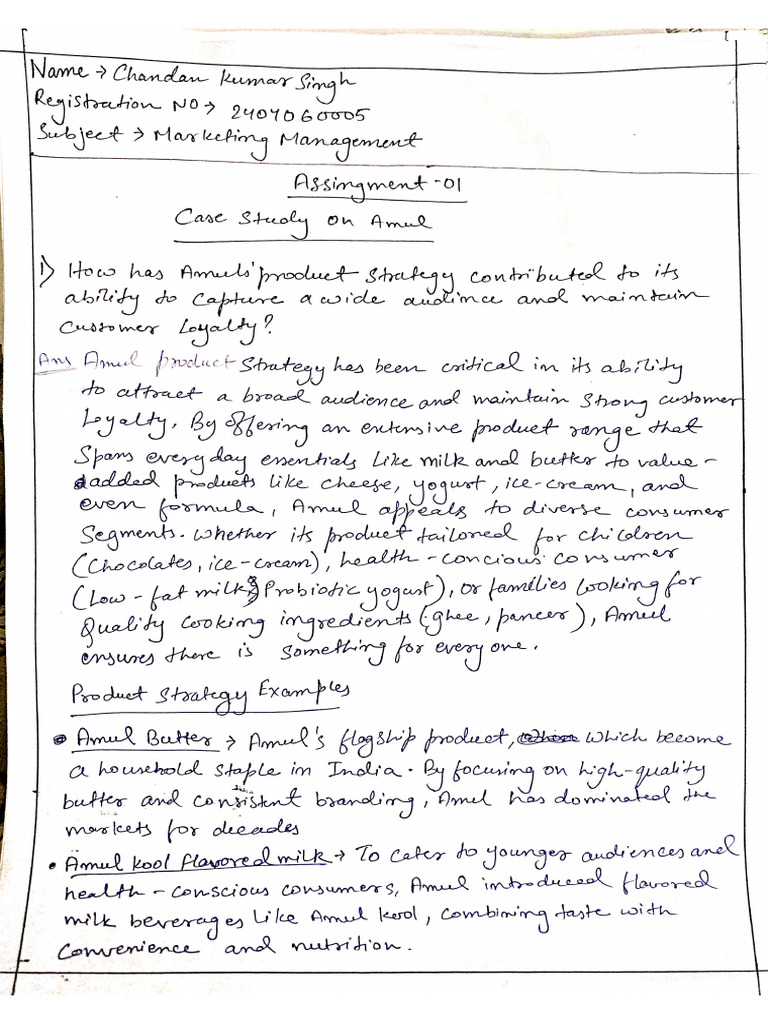 Name → Chandan Kumar Singh
Registration NO → 2404060005
Subject → Marketing Management
Assingment-01
Case Study on Amul
1) How has Amuls' product strategy contributed to its
ability to capture a wide audince and maintain
customer Loyalty?
Ans Amul product Strategy has been critical in its ability
to attract a broad audience and maintain strong customer
Loyalty. By offering an extensive product range that
Spans everyday essentials Like milk and butter to value-
added products like cheese, yogurt, ice-cream, and
even formula, Amul appeals to diverse consumer
Segments. Whether its product tailored for children
(Chocolates, ice-cream), health-concious consumer
(Low-fat milk, Probiotic yogust), or families looking for
Quality cooking ingredients (ghee, paneer), Amul
ensures there is something for everyone.
Product Strategy Examples
• Amul Butter → Amul's flagship product, which become
a household staple in India. By focusing on high-quality
butter and consistent branding, Amul has dominated the
markets for decades
• Amul kool flavored milk → To cater to younger audiences and
health-conscious consumers, Amul introduced flavored
milk beverages like Amul kool, combining taste with
convenience and nutrition.